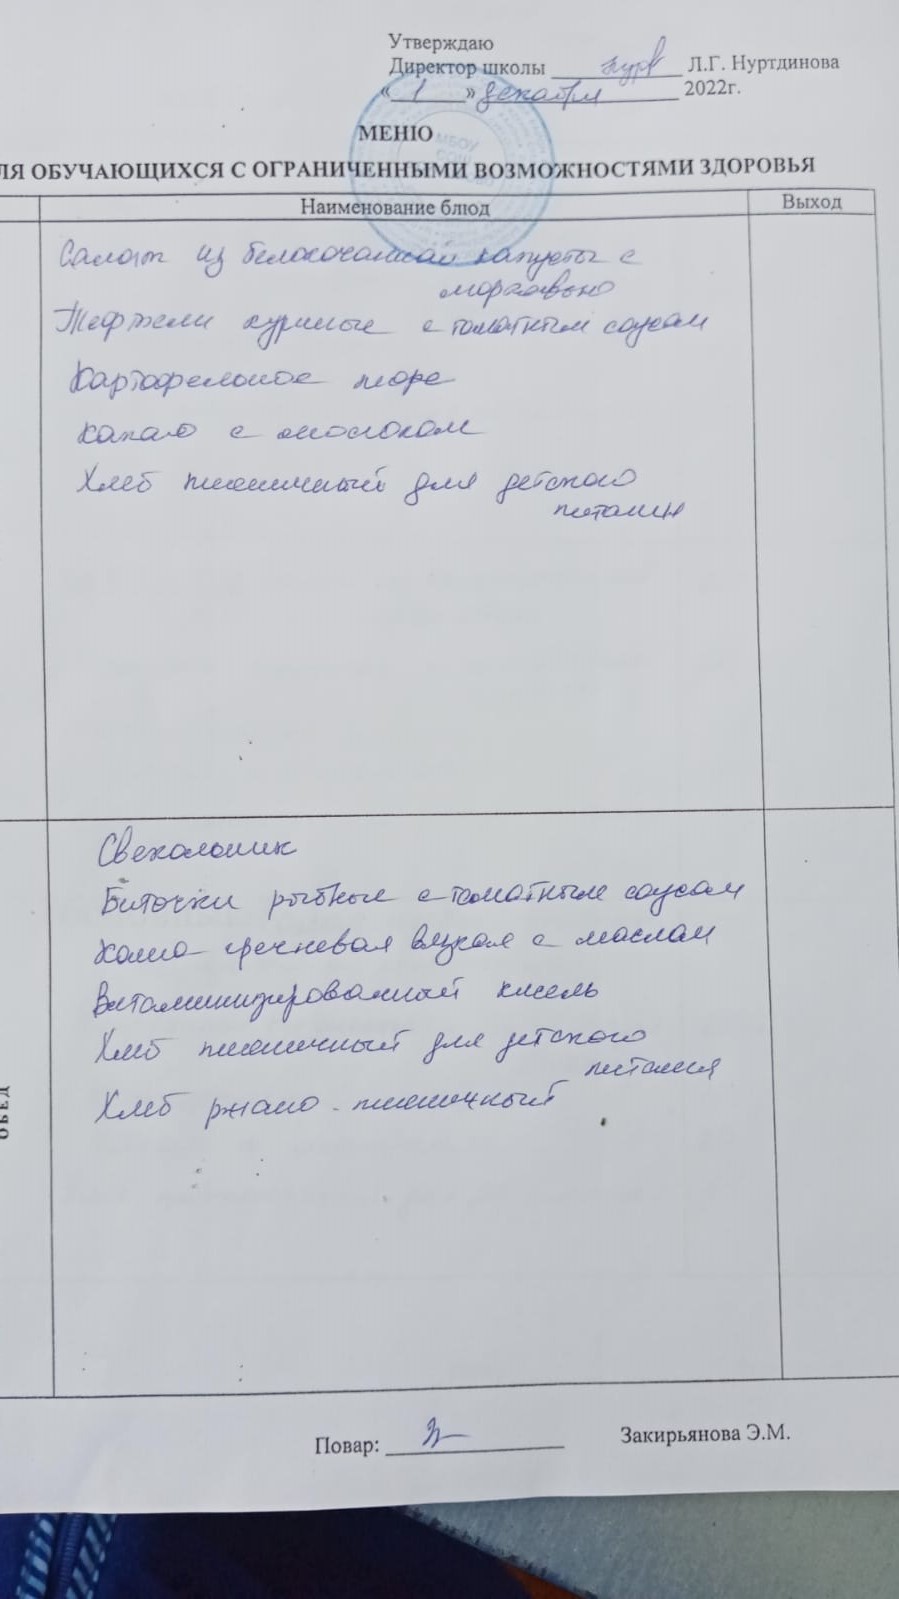 Утверждаю
Директор школы Л.Г. Нуртдинова
« 1 » декабря 2022г.
МЕНЮ
ЛЯ ОБУЧАЮЩИХСЯ С ОГРАНИЧЕННЫМИ ВОЗМОЖНОСТЯМИ ЗДОРОВЬЯ
Наименование блюд Выход
Салат из белокочанной капусты с
морковью
Тефтели куриные с томатным соусом
Картофельное пюре
Какао с молоком
Хлеб пшеничный для детского
питания
Свекольник
Биточки рыбные с томатным соусом
Каша гречневая вязкая с маслом
Витаминизированный кисель
Хлеб пшеничный для детского
питания
Хлеб ржано-пшеничный
ОБЕД
Повар: Закирьянова Э.М.